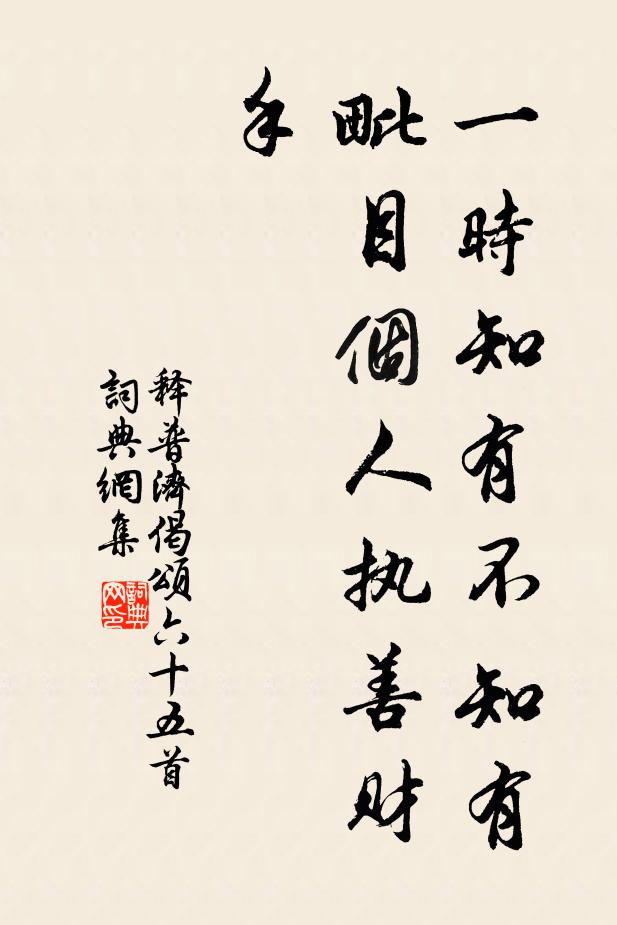 一時知有不知有
毗目個人执善财
手
释普濟偈頌六十五首
詞典網集
詞典网印